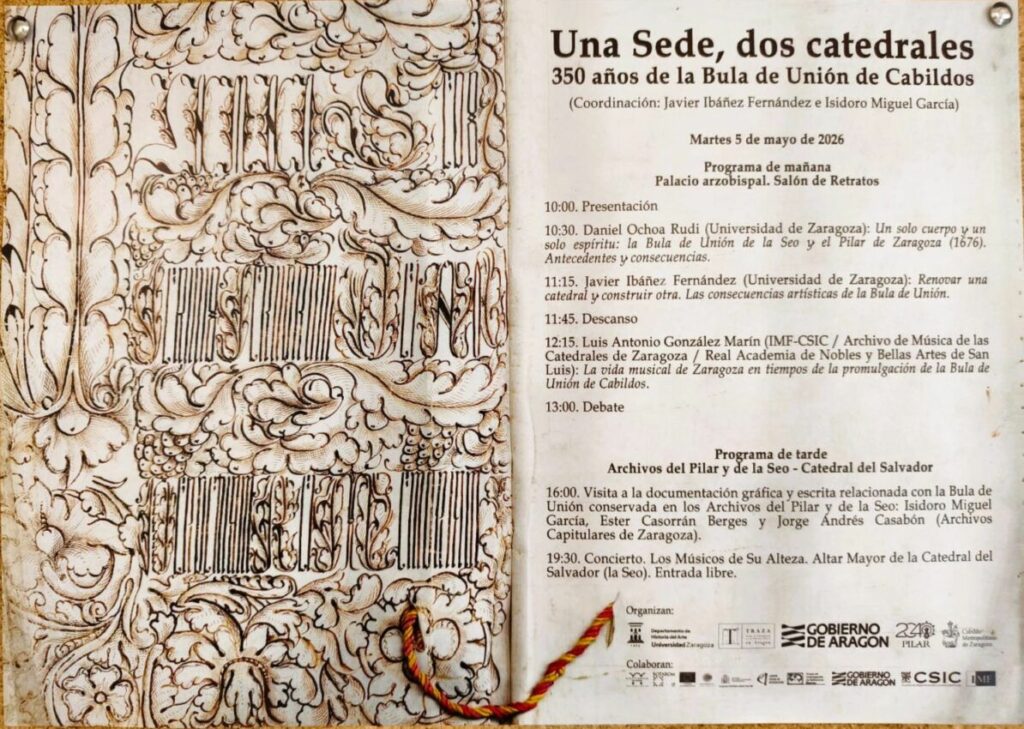 Una Sede, dos catedrales
350 años de la Bula de Unión de Cabildos
(Coordinación: Javier Ibáñez Fernández e Isidoro Miguel García)
Martes 5 de mayo de 2026
Programa de mañana
Palacio arzobispal. Salón de Retratos
10:00. Presentación
10:30. Daniel Ochoa Rudi (Universidad de Zaragoza): Un solo cuerpo y un
solo espíritu: la Bula de Unión de la Seo y el Pilar de Zaragoza (1676).
Antecedentes y consecuencias.
11:15. Javier Ibáñez Fernández (Universidad de Zaragoza): Renovar una
catedral y construir otra. Las consecuencias artísticas de la Bula de Unión.
11:45. Descanso
12:15. Luis Antonio González Marín (IMF-CSIC / Archivo de Música de las
Catedrales de Zaragoza / Real Academia de Nobles y Bellas Artes de San
Luis): La vida musical de Zaragoza en tiempos de la promulgación de la Bula de
Unión de Cabildos.
13:00. Debate
Programa de tarde
Archivos del Pilar y de la Seo - Catedral del Salvador
16:00. Visita a la documentación gráfica y escrita relacionada con la Bula de
Unión conservada en los Archivos del Pilar y de la Seo: Isidoro Miguel
García, Ester Casorrán Berges y Jorge Andrés Casabón (Archivos
Capitulares de Zaragoza).
19:30. Concierto. Los Músicos de Su Alteza. Altar Mayor de la Catedral del
Salvador (la Seo). Entrada libre.
Organizan:
Departamento de
Historia del Arte
Universidad Zaragoza
TRAZA
GOBIERNO
DE ARAGON
PILAR
Cabildo
Metropolitano
de Zaragoza
Colaboran:
GOBIERNO
DE ARAGON
CSIC
IMF